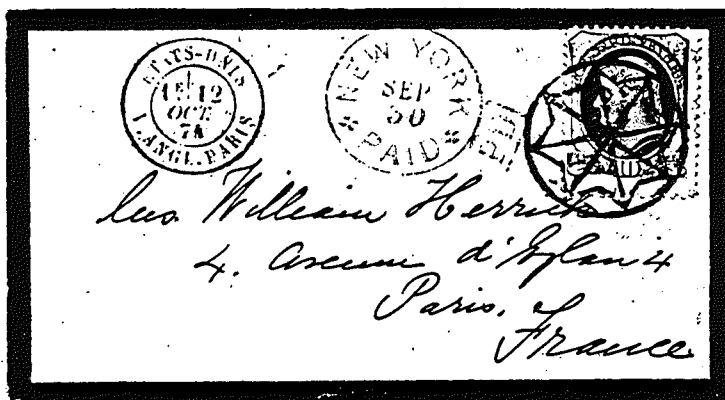 ETATS-UNIS
12
OCT
74
ANGL. PARIS
NEW YORK
SEP
30
PAID
William Herrick
4. Avenue d'Eylau 4
Paris.
France